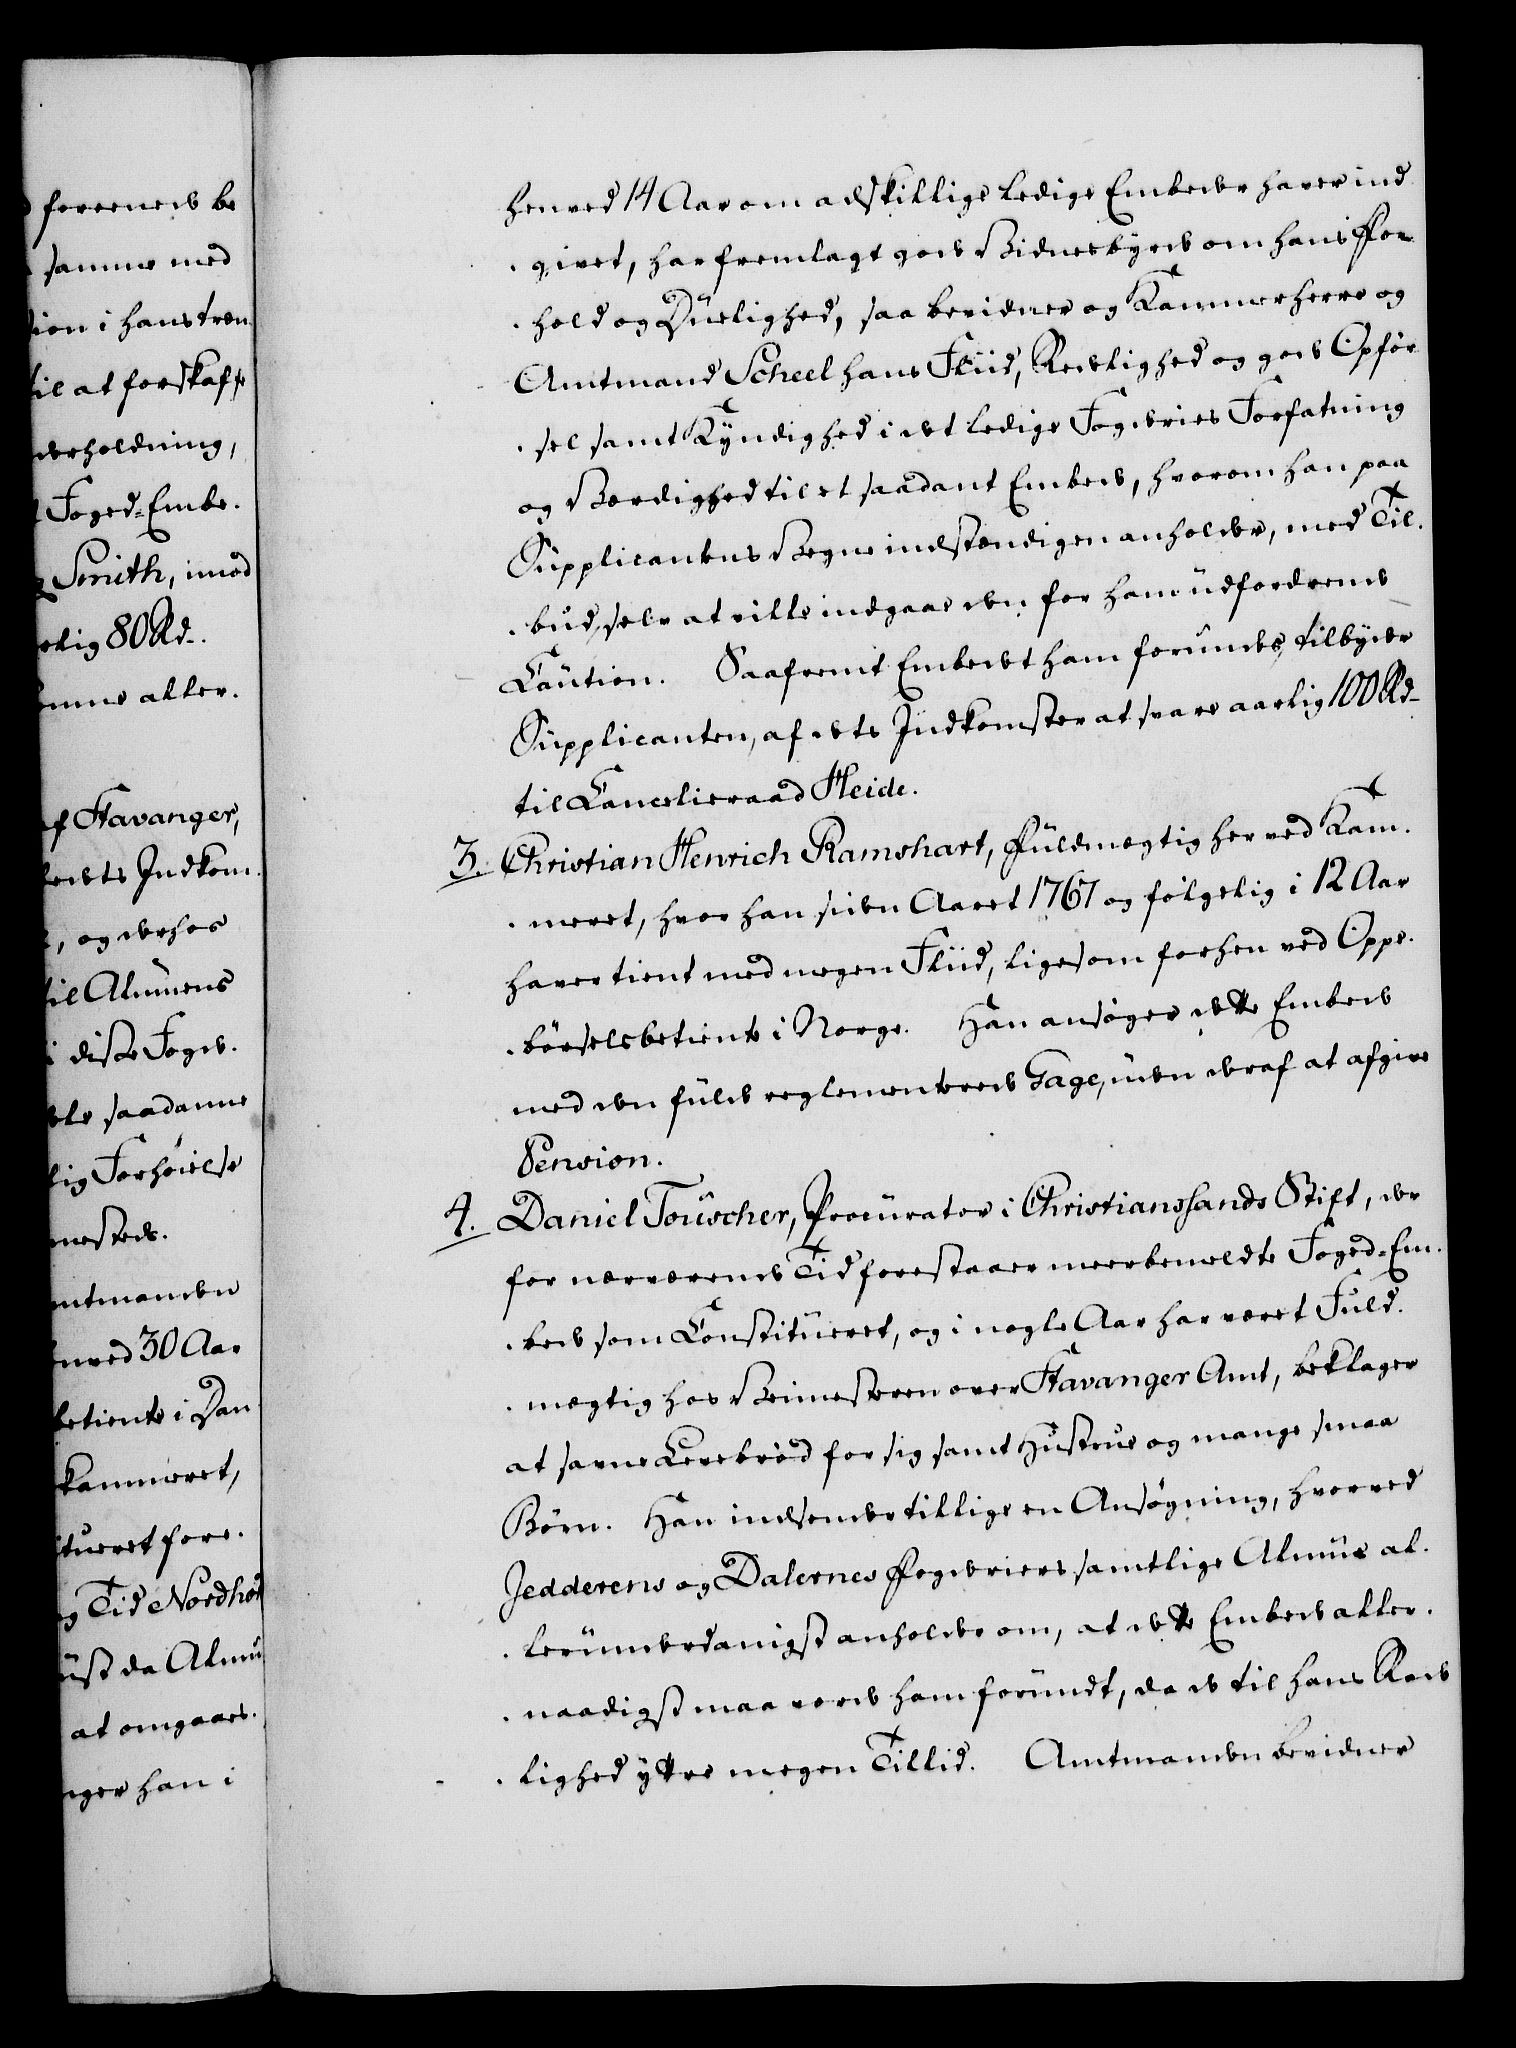 foreenede be
samme med
sion i hans tren
til at forskaffe
derholdning,
Foged-Embe.
Smith, imod
rlig 80 Rd.
omme aller.
af Stavanger,
bedets Indkom.
, og derhos
til Almuens
i diste Foged.
dele saadanne
lig Forhöielse
nesteds.
mtmanden
henved 30 Aar
betiente i Dan
kammeret,
tueret fore.
og Tid Nordhor
üst da Almu
at omgaaes.
nger han i
henved 14 Aar om adskillige ledige Embeder haver ind
givet, har fremlagt gode Vidnesbyrd om hans For
hold og Duelighed, saa bevidner og Kammerherre og
Amtmand Scheel hans Fliid, Redelighed og gode Opför
sel samt Kyndighed i det ledige Fogderies Forfatning
og Værdighed til et saadant Embede, hvorom han paa
Supplicantens Vegne indstændigen anholder, med Til.
bud, selv at ville indgaae den for ham udfordrende
Caution. Saafremt Embedet ham forundes, tilbyder
Supplicanten, af dets Indkomster at svare aarlig 100 Rd
til Cancelieraad Heide.
3. Christian Henrich Ramshart, Fuldmægtig her ved Kam.
meret, hvor han siden Aaret 1767 og fölgelig i 12 Aar
haver tient med megen Fliid, ligesom forhen ved Oppe.
börselsbetiente i Norge. Han ansöger dette Embede
med den fulde reglementerede Gage, uden deraf at afgive
Pension.
4. Daniel Touscher, Procurator i Christianssands Stift, der
for nærværende Tid forestaaer meerbemeldte Foged-Em.
bede som Constitueret, og i nogle Aar har været Fuld.
mægtig hos Veimesteren over Stavanger Amt, beklager
at savne Levebröd for sig samt Hustrue og mange smaa
Börn. Han indsender tillige en Ansögning, hvorved
Jedderens og Dalernes Fogderiers samtlige Almue al.
lerunderdanigst anholder om, at dette Embede aller.
naadigst maa vorde ham forundt, da de til hans Rede
lighed yttre megen Tillid. Amtmanden bevidner